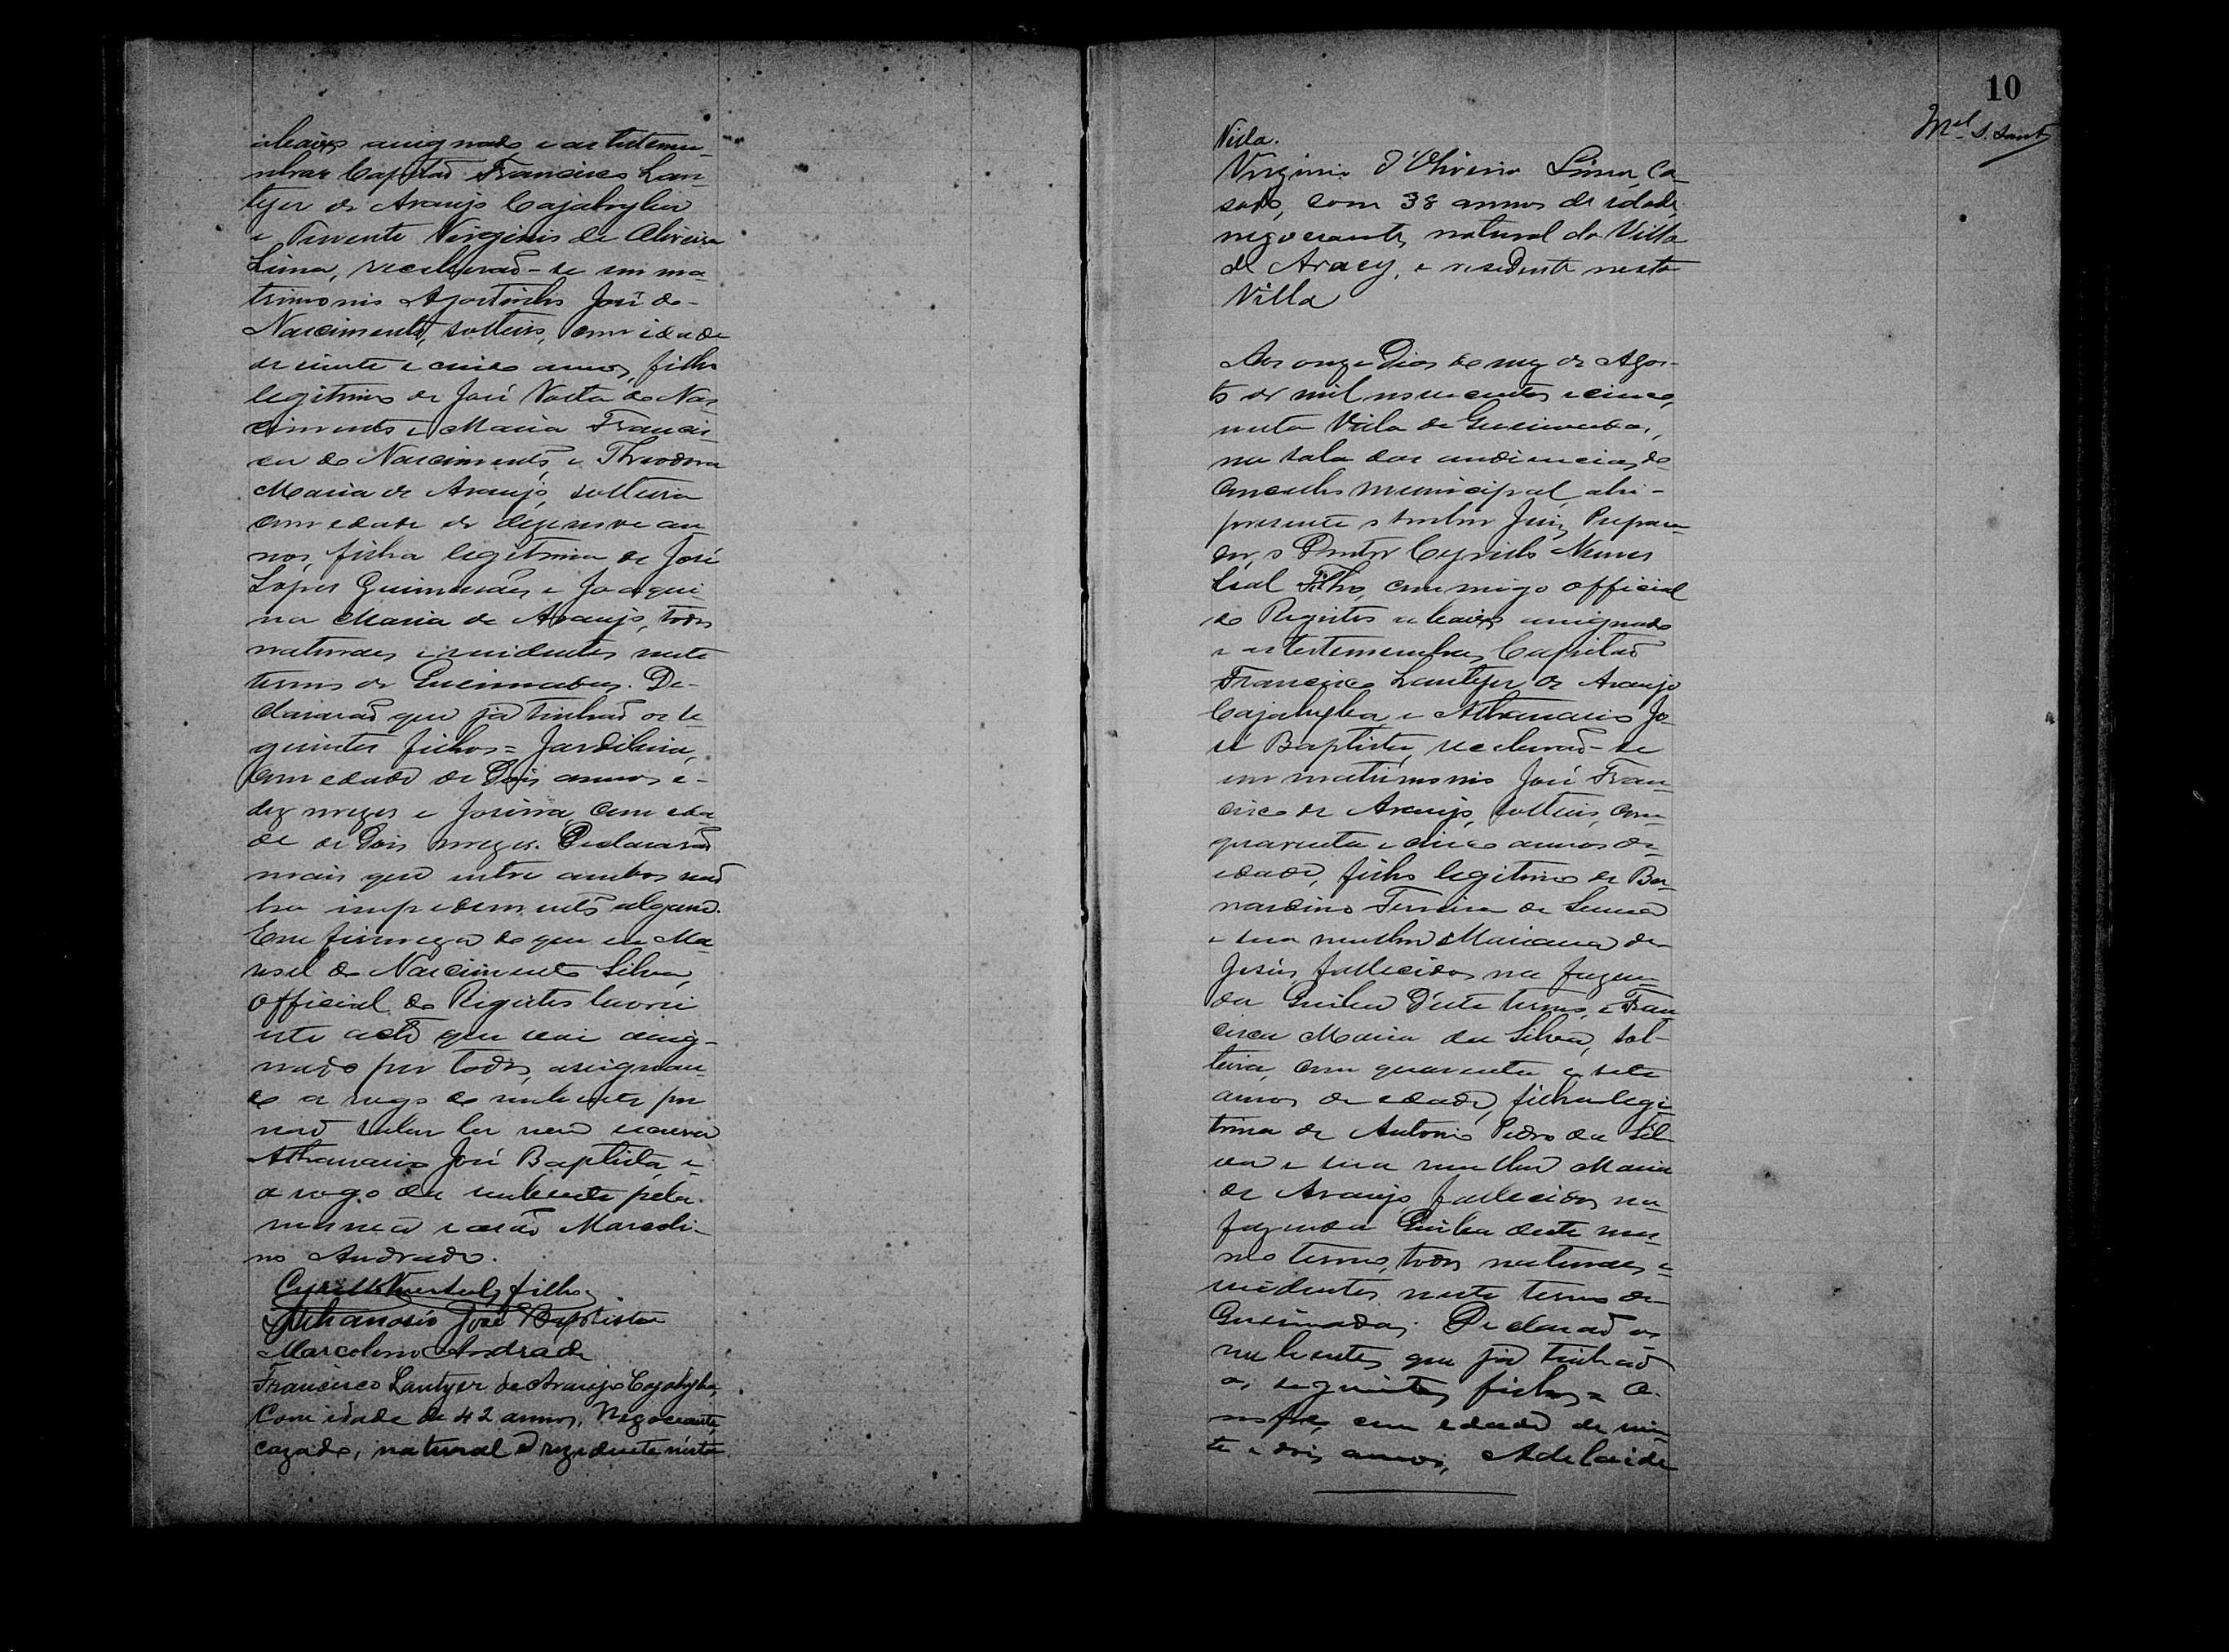 abaixo assignado e as testemu-
nhas Capitão Francisco Lan-
tyer de Araujo Cajahyba
e Tenente Virginio de Oliveira
Lima, receberaõ-se em ma-
trimonio Agostinho José do
Nascimento, solteiro, com idade
de vinte e cinco annos, filho
legitimo de José Costa do Nas
cimento e Maria Francis
ca do Nascimento, e Theodora
Maria de Araujo, solteira
com edade de dezenove an
nos, filha legitima de José
Lopes Guimarães e Joaqui-
na Maria de Araujo, todos
naturaes e residentes neste
termo de Queimadas. De-
clararaõ que já tinhaõ os se
guintes filhos = Jardilina,
com edade de dois annos e
dez mezes e Josina, com eda
de de dois mezes. Declararaõ
mais que entre ambos naõ
ha impedimento algum.
Em firmeza do que eu Ma
noel do Nascimento Silva,
official do Registro lavrei
este acto que vai assig-
nado por todos, assignan-
do a rogo do nubente por
naõ saber ler nem escrever
Athanasio José Baptista, e
a rogo da nubente pela
mesma rasaõ Marcoli-
no Andrade.
Cyrillo Nunes Leal filho
Athanasio José Baptista
Marcolino Andrade
Francisco Lantyer de Araujo Cajahyba,
Com idade de 42 annos, Negociante,
cazado, natural e rezidente nésta
10
Mel S. Sant
Villa.
Virginio d'Oliveira Lima, Ca-
sado, com 38 annos de idade,
negociante, natural da Villa
de Aracy, e residente nesta
Villa
Aos onze dias do mez de Agos-
to de mil novecentos e cinco,
nesta Villa de Queimadas,
na sala das audiencias do
Conselho Municipal, ahi
presente o Senhor Juiz Prepara
dor, o Doutor Cyrillo Nunes
Leal Filho, commigo official
do Registro abaixo assignado
e as testemunhas Capitaõ
Francisco Lantyer de Araujo
Cajahyba, e Athanasio Jo-
sé Baptista, receberaõ-se
em matrimonio José Fran-
cisco de Araujo, solteiro, com
quarenta e cinco annos de
edade, filho legitimo de Ber
nardino Ferreira de
e sua mulher Marianna de
Jesus fallecidos na fazen-
da deste termo, e Fran
cisca Maria da Silva, sol-
teira, com quarenta e sete
annos de edade, filha legi
tima de Antonio Pedro da Sil
va e sua mulher Maria
de Araujo fallecidos na
fazenda deste mes
mo termo, todos naturaes e
residentes neste termo de
Queimadas. Declaraõ os
nubentes que já tinhaõ
os seguintes filhos = O
com edade de vin
te e dois annos, Adelaide